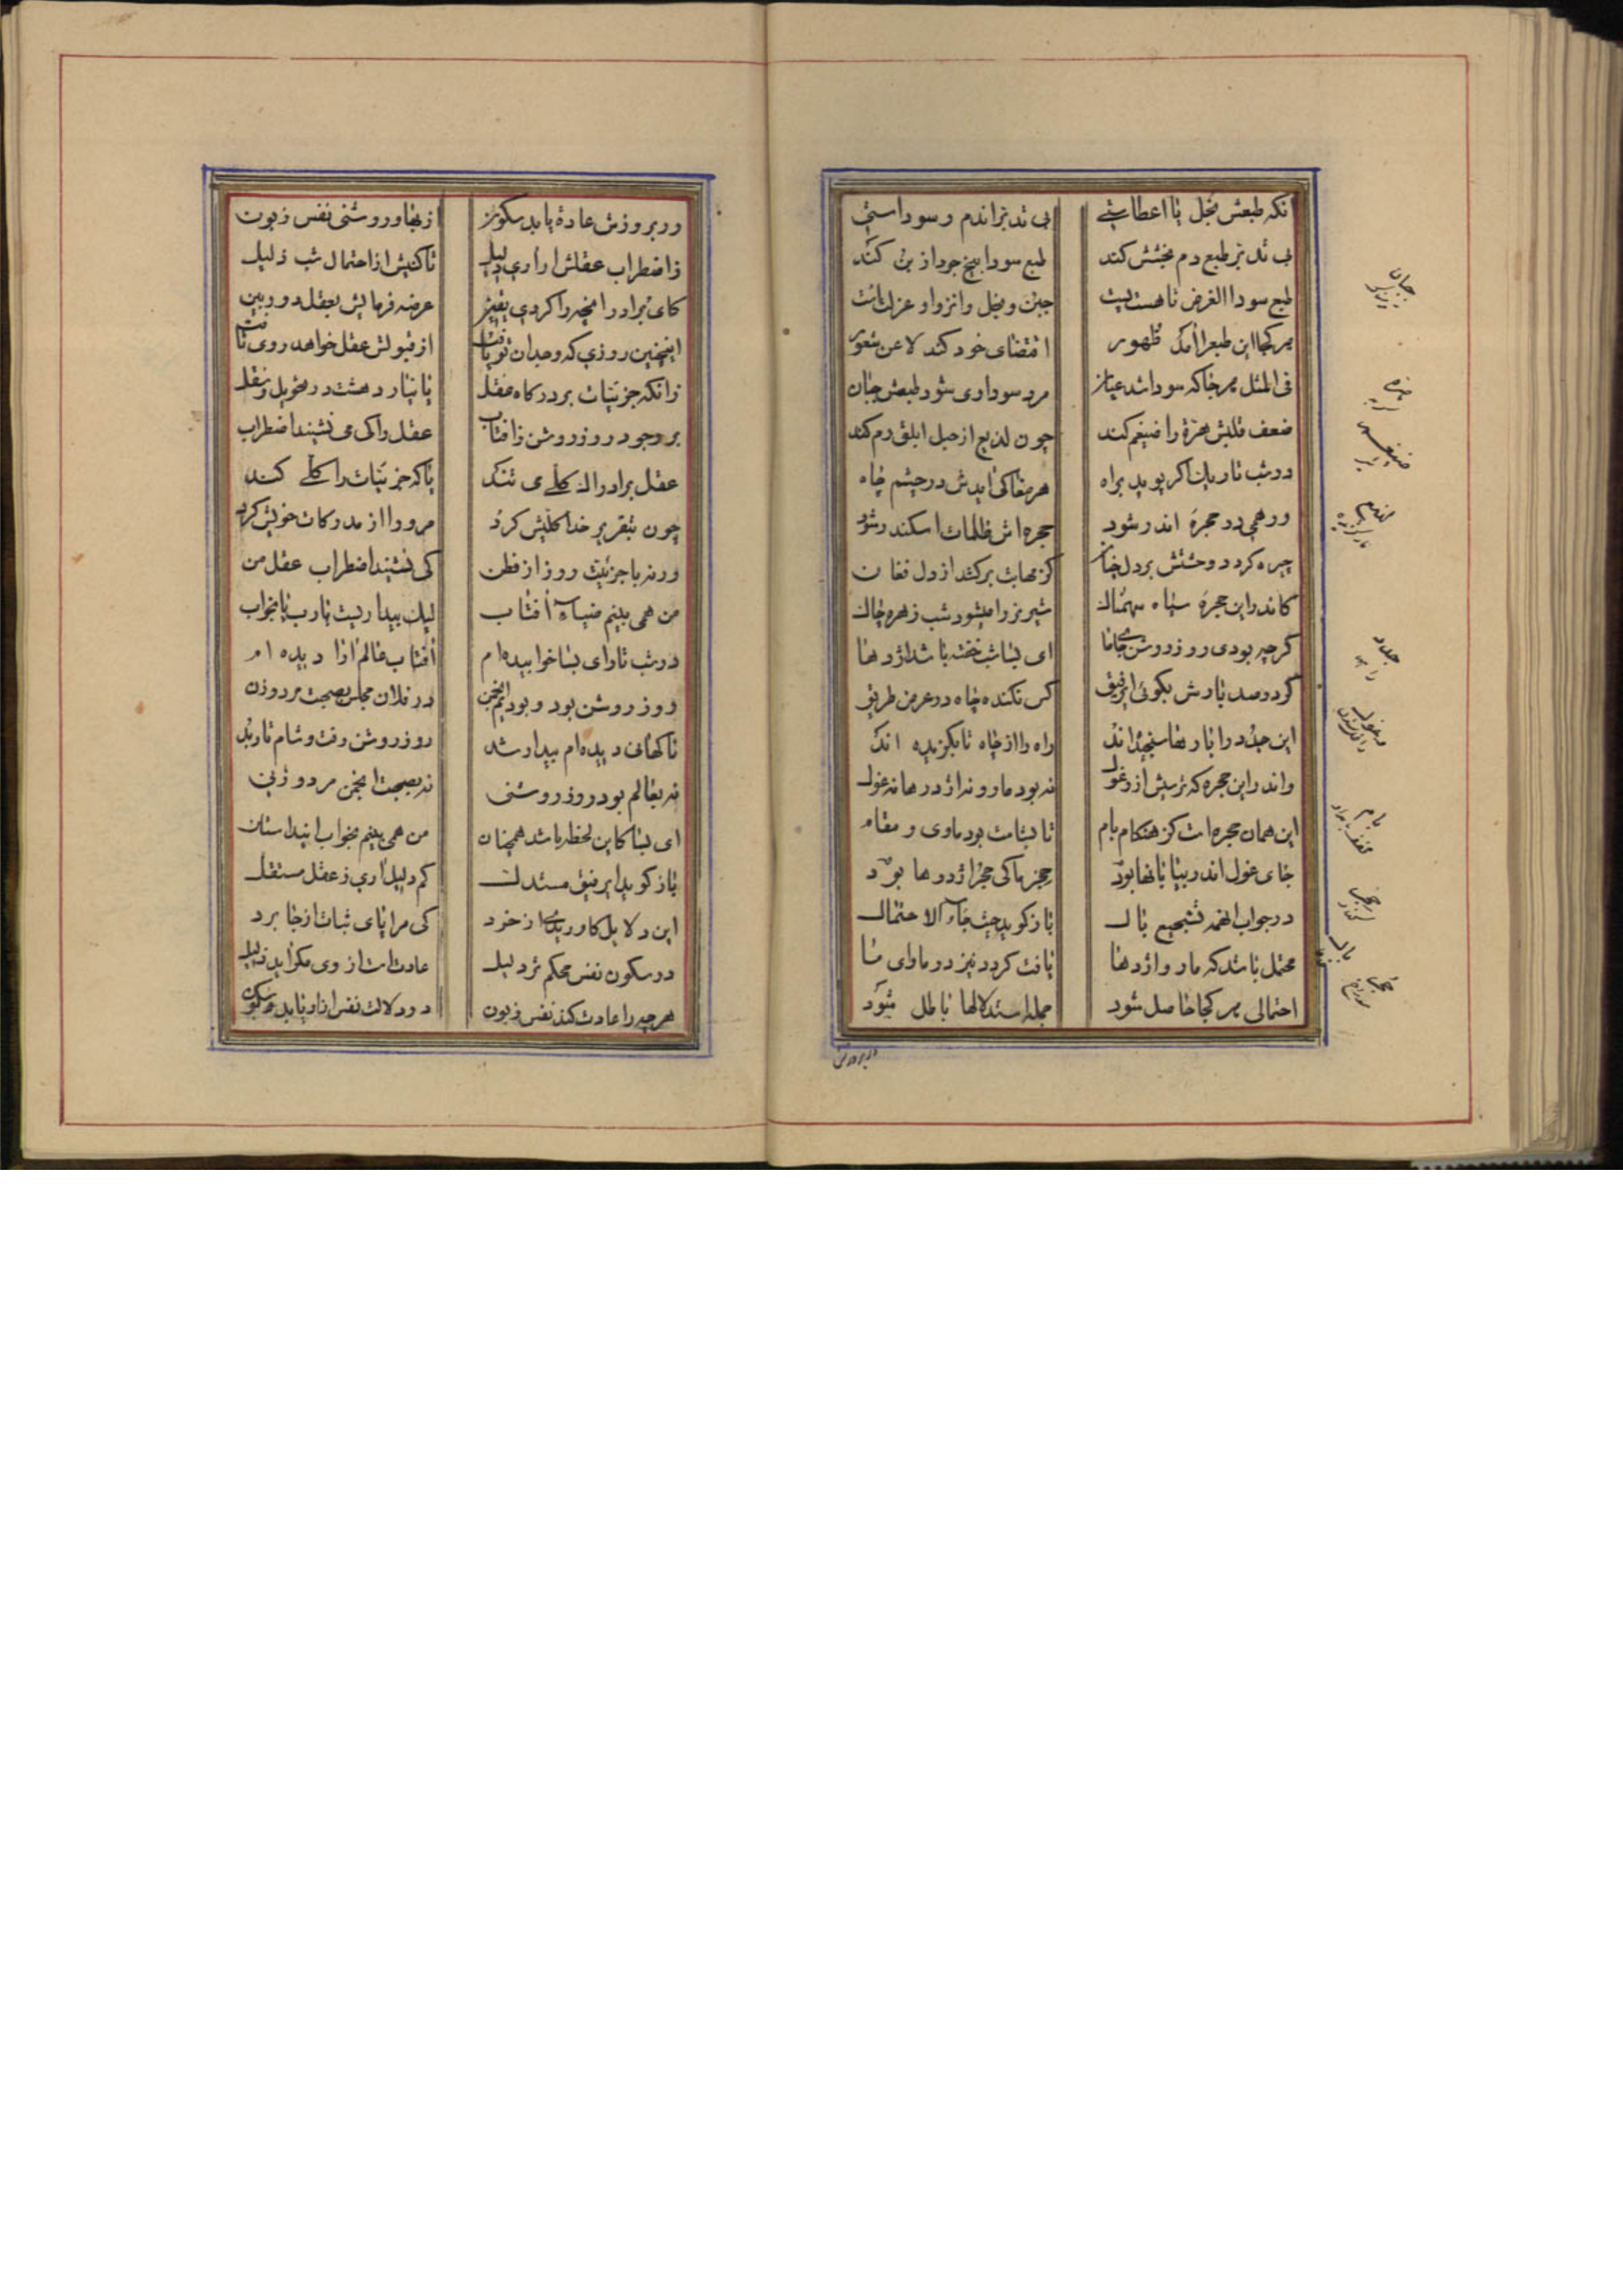 آنکه طبعش بخل یا اعطاستی
بی تدبر اندم و سوداستی
بی تدبر طبع دم بخشش کند
طبع سودا بیخ جود از بن کند
طبع سودا الغرض تا هست پست
جبن و بخل و انزوا و عزلت است
هر کجا این طبع را آمد ظهور
اقتضای خود کند لا عن شعور
فی المثل هر جا که سودا شد عیان
مرد سوداوی شود طبعش جبان
ضعف قلبش هرّة را ضیغم کند
چون لدیغ از حبل ابلق رم کند
در شب تاریک اگر پوید براه
هر مغاکی آیدش در چشم چاه
ور همی در حجرهٔ اندر شود
حجره‌اش ظلمات اسکندر شود
چیره گردد وحشتش بر دل چنان
کز مهابت برکشد از دل فغان
کاندر این حجرهٔ سیاه سهمناک
شیر نر را میشود شب زهره چاک
گرچه بودی روز روشن جای ما
ای بسا شب خفته باشد اژدها
گر دو صد بارش بگوئی ای رفیق
کس نکنده چاه در عرض طریق
این جدد را بارها سنجیده‌اند
راه را از چاه تا بگزیده‌اند
واندر این حجره که ترسیش از وغول
نه بود مار و نه اژدرها نه غول
این همان حجره است کز هنگام بام
تا بشامت بود ماوی و مقام
جای غول اندر بیابانها بود
حجر ما کی حجر اژدرها بود
در جواب اینهمه تشجیع بال
باز گوید حیث جاء الاحتمال
محتمل باشد که مار و اژدها
یافت گردد نیز در ماوای ما
احتمالی هر کجا حاصل شود
جمله استدلالها باطل شود
در بروزش
جبان
هره
ضیغم
لدیغ
جدد
غول
بام
مخفف بامداد
حجر
بال
ور بروزش عادة یابد سکون
از بقا و روشنی نفس زبون
ز اضطراب عقلش ار آری دلیل
تا کنیش از احتمال شب ذلیل
کای برادر آنچه را کردی یقین
عرضه فرمایش بعقل دوربین
اینچنین روزی که وجدان تو یافت
از قبولش عقل خواهد روی تافت
زانکه جزئیات بر درگاه عقل
پا نیارد هشت در تحویل و نقل
بر وجود روز روشن ز آفتاب
عقل را کی می نشیند اضطراب
عقل برادراک کلی می تند
تا که جزئیات را کلی کند
چون بتقریر خدا کلیش کرد
مر ورا از مدرکات خویش کرد
ورنه با جزئیت روز از فطن
کی نشیند اضطراب عقل من
من همی بینم ضیاء آفتاب
لیک بیداریست یارب یا بخواب
در شب تار ای بسا خوابیده‌ام
آفتاب عالم آرا دیده‌ام
روز روشن بود و بودیم انجمن
در فلان مجلس بصحبت مرد و زن
ناگهانی دیده‌ام بیدار شد
روز روشن رفت و شام تار شد
نه بعالم بود روز روشنی
نه بصحبت انجمن مرد و زنی
ای بسا کاین لحظه باشد همچنان
من همی بینم بخواب این داستان
باز گوید ای رفیق مستدل
کم دلیل آری ز عقل مستقل
این دلایل کاوریدی از خرد
کی مرا پای ثبات از جا برد
در سکون نفس محکم تر دلیل
عادت است از وی مگر آید ذلیل
هر چه را عادت کند نفس زبون
در دلالت نفس از او یابد سکون